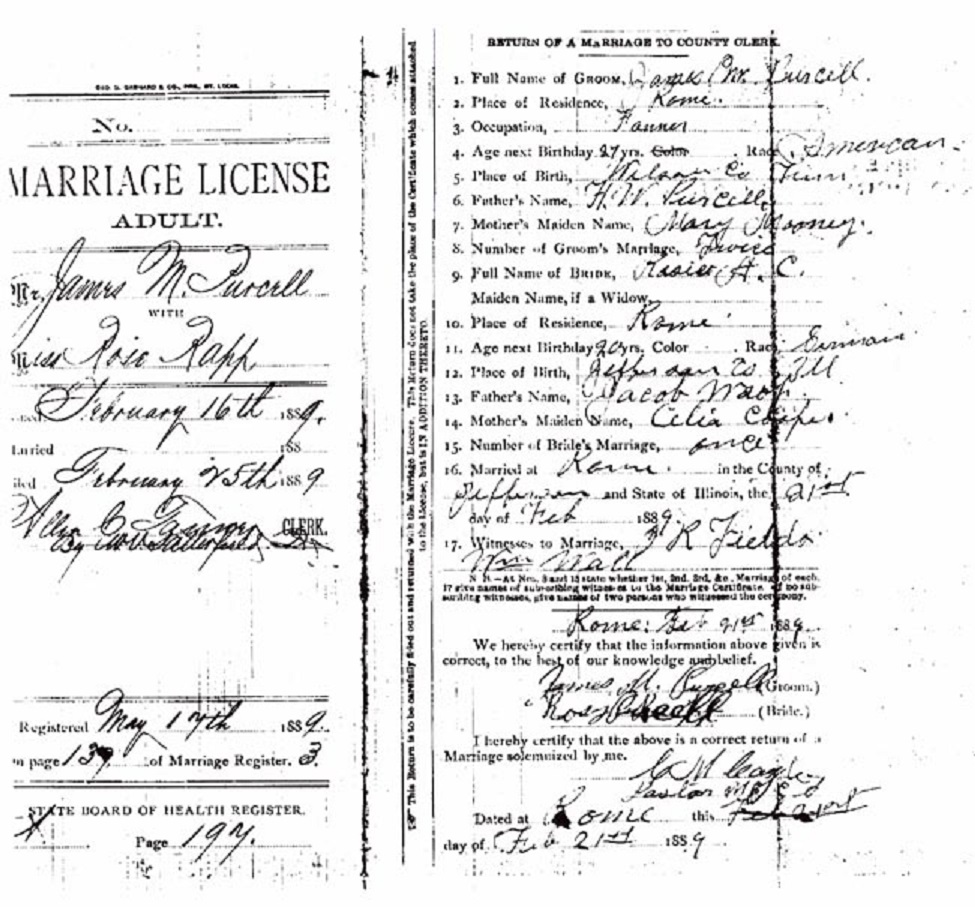 GEO. D. BARNARD & CO., PRS., ST. LOUIS.
No.
MARRIAGE LICENSE
ADULT.
Mr. James M. Purcell
WITH
Miss Rose Rapp
February 16th 1889.
Married 188
Filed February 25th 1889
CLERK.
Registered May 17th 1889.
on page 139 of Marriage Register. 3
STATE BOARD OF HEALTH REGISTER.
Page 197.
This Return is to be carefully filled out and returned with the Marriage License. This Return does not take the place of the Certificate which comes attached
to the License, but is IN ADDITION THERETO.
RETURN OF A MARRIAGE TO COUNTY CLERK.
1. Full Name of GROOM, James Purcell.
2. Place of Residence, Rome.
3. Occupation, Farmer
4. Age next Birthday 27 yrs. Color Race American
5. Place of Birth, Wilson Co Tenn
6. Father's Name, H. W. Purcell
7. Mother's Maiden Name, Mary Mooney.
8. Number of Groom's Marriage, Twice
9. Full Name of BRIDE, C.
Maiden Name, if a Widow,
10. Place of Residence, Rome
11. Age next Birthday 20 yrs. Color Race German
12. Place of Birth, Jefferson Co Ill
13. Father's Name, Jacob
14. Mother's Maiden Name, Celia
15. Number of Bride's Marriage, once
16. Married at Rome in the County of
Jefferson and State of Illinois, the 21st
day of Feb 1889.
17. Witnesses to Marriage, J R Fields
Wm Wall
N. B.—At Nos. 8 and 15 state whether 1st, 2nd, 3rd, &c., Marriage of each.
17 give names of subscribing witnesses to the Marriage Certificate. If no sub-
scribing witnesses, give names of two persons who witnessed the ceremony.
Rome: Feb 21st 1889.
We hereby certify that the information above given is
correct, to the best of our knowledge and belief.
James M. Purcell (Groom.)
Rosy Purcell (Bride.)
I hereby certify that the above is a correct return of a
Marriage solemnized by me.
Pastor
Dated at Rome this
day of Feb 21st 1889